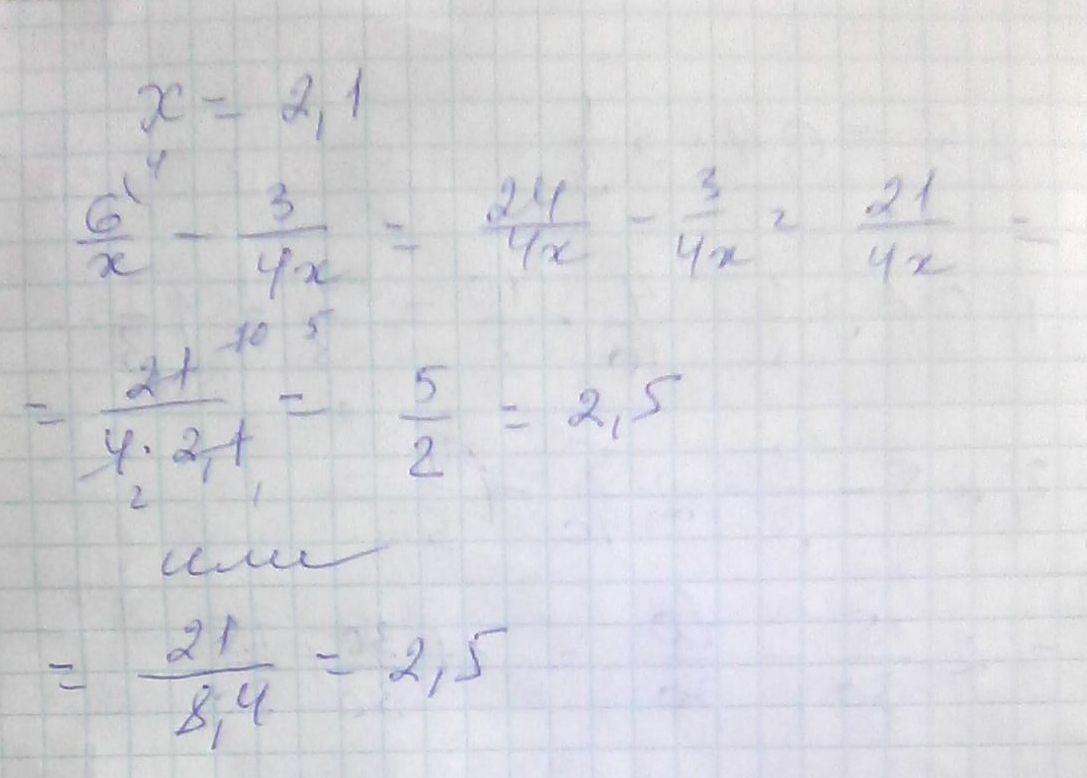 x = 2,1
6/x (4 - 3/4x = 24/4x - 3/4x = 21/4x =
= 21 10 5/4 · 2,1 2 1 = 5/2 = 2,5
или
= 21/8,4 = 2,5